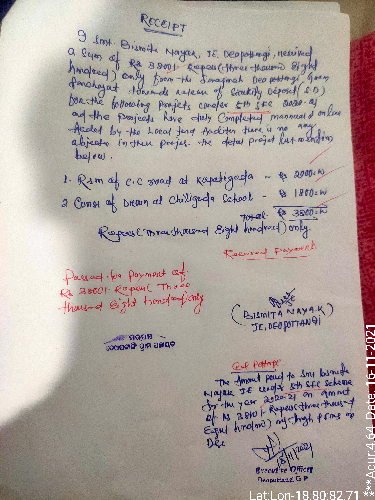 RECEIPT
I Smt. Bismita Nayak, JE, Deopottangi, received
a sum of Rs 3800/- Rupees (three thousand Eight
hundred) only from the Sarapanch Deopottangi Gram
Panchayat towards release of Security Deposit (S.D)
for the following projects under 5th SFC 2020-21
and the projects have duly Completed manual & online
Audited by the Local fund Auditor there is no any
objection in these projects. the detail project list mention
below.
1. R&m of C.C road at Kapatigada - Rs 2000=00
2 Const of Drain at Chiligada School - Rs 1800=00
Total Rs 3800=00
Rupees (Three thousand Eight hundred) only.
Received Payment
Passed for payment of
Rs 3800/- Rupees (Three
thousand Eight hundred) only
(BISMITA NAYAK)
JE, DEOPOTTANGI
The Amount paid to Smt Bismita
Nayak JE under 5th SFC Scheme
for the year 2020-21 an amount
of Rs 3800/- Rupees three thousand
Eight hundred)
18/11/2021
Executive Officer
G.P
Lat:Lon-18.80:82.71
***Acur:4.64, Date:16-11-2021